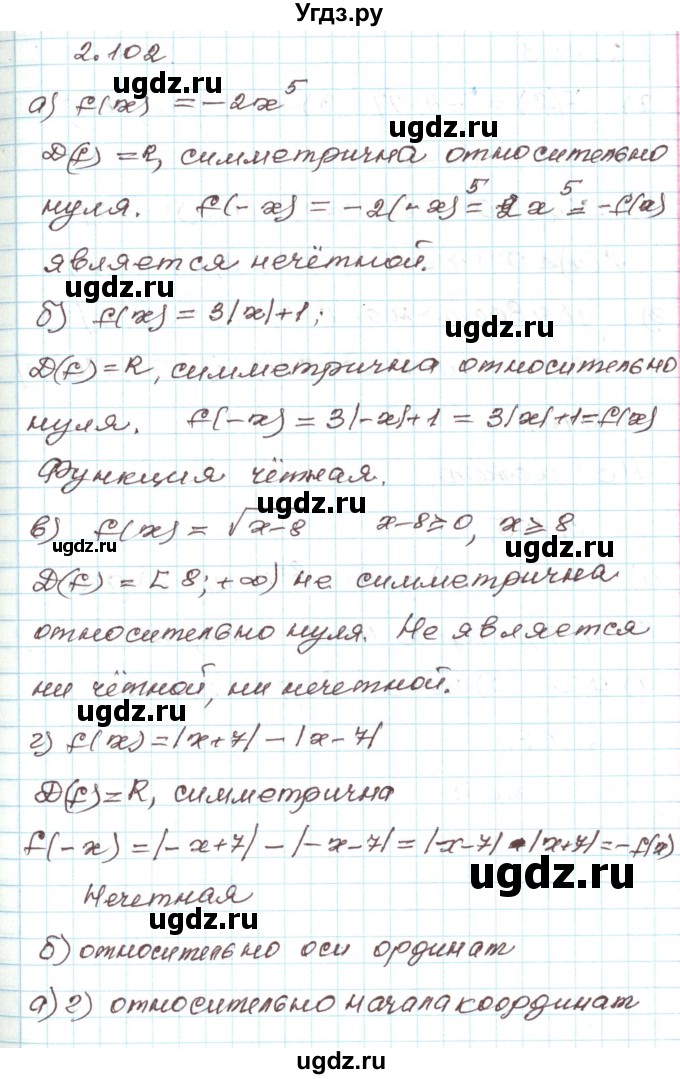 Угдз.ру
2.102
ugdz.ru
а) f(x) = -2x⁵
ugdz.ru
D(f) = R, симметрична относительно
нуля. f(-x) = -2(-x)⁵ = 2x⁵ = -f(x)
является нечётной.
ugdz.ru
ugdz.ru
б) f(x) = 3|x|+1;
ugdz.ru
D(f) = R, симметрична относительно
нуля. f(-x) = 3|-x|+1 = 3|x|+1 = f(x)
Функция чётная.
ugdz.ru
в) f(x) = √x-8 x-8≥0, x≥8
ugdz.ru
ugdz.ru
D(f) = [8; +∞) не симметрична
относительно нуля. Не является
ни чётной, ни нечетной.
ugdz.ru
г) f(x) = |x+7| - |x-7|
ugdz.ru
D(f) = R, симметрична
f(-x) = |-x+7| - |-x-7| = |x-7| - |x+7| = -f(x)
ugdz.ru
Нечетная
ugdz.ru
б) относительно оси ординат
ugdz.ru
а) г) относительно начала координат
ugdz.ru